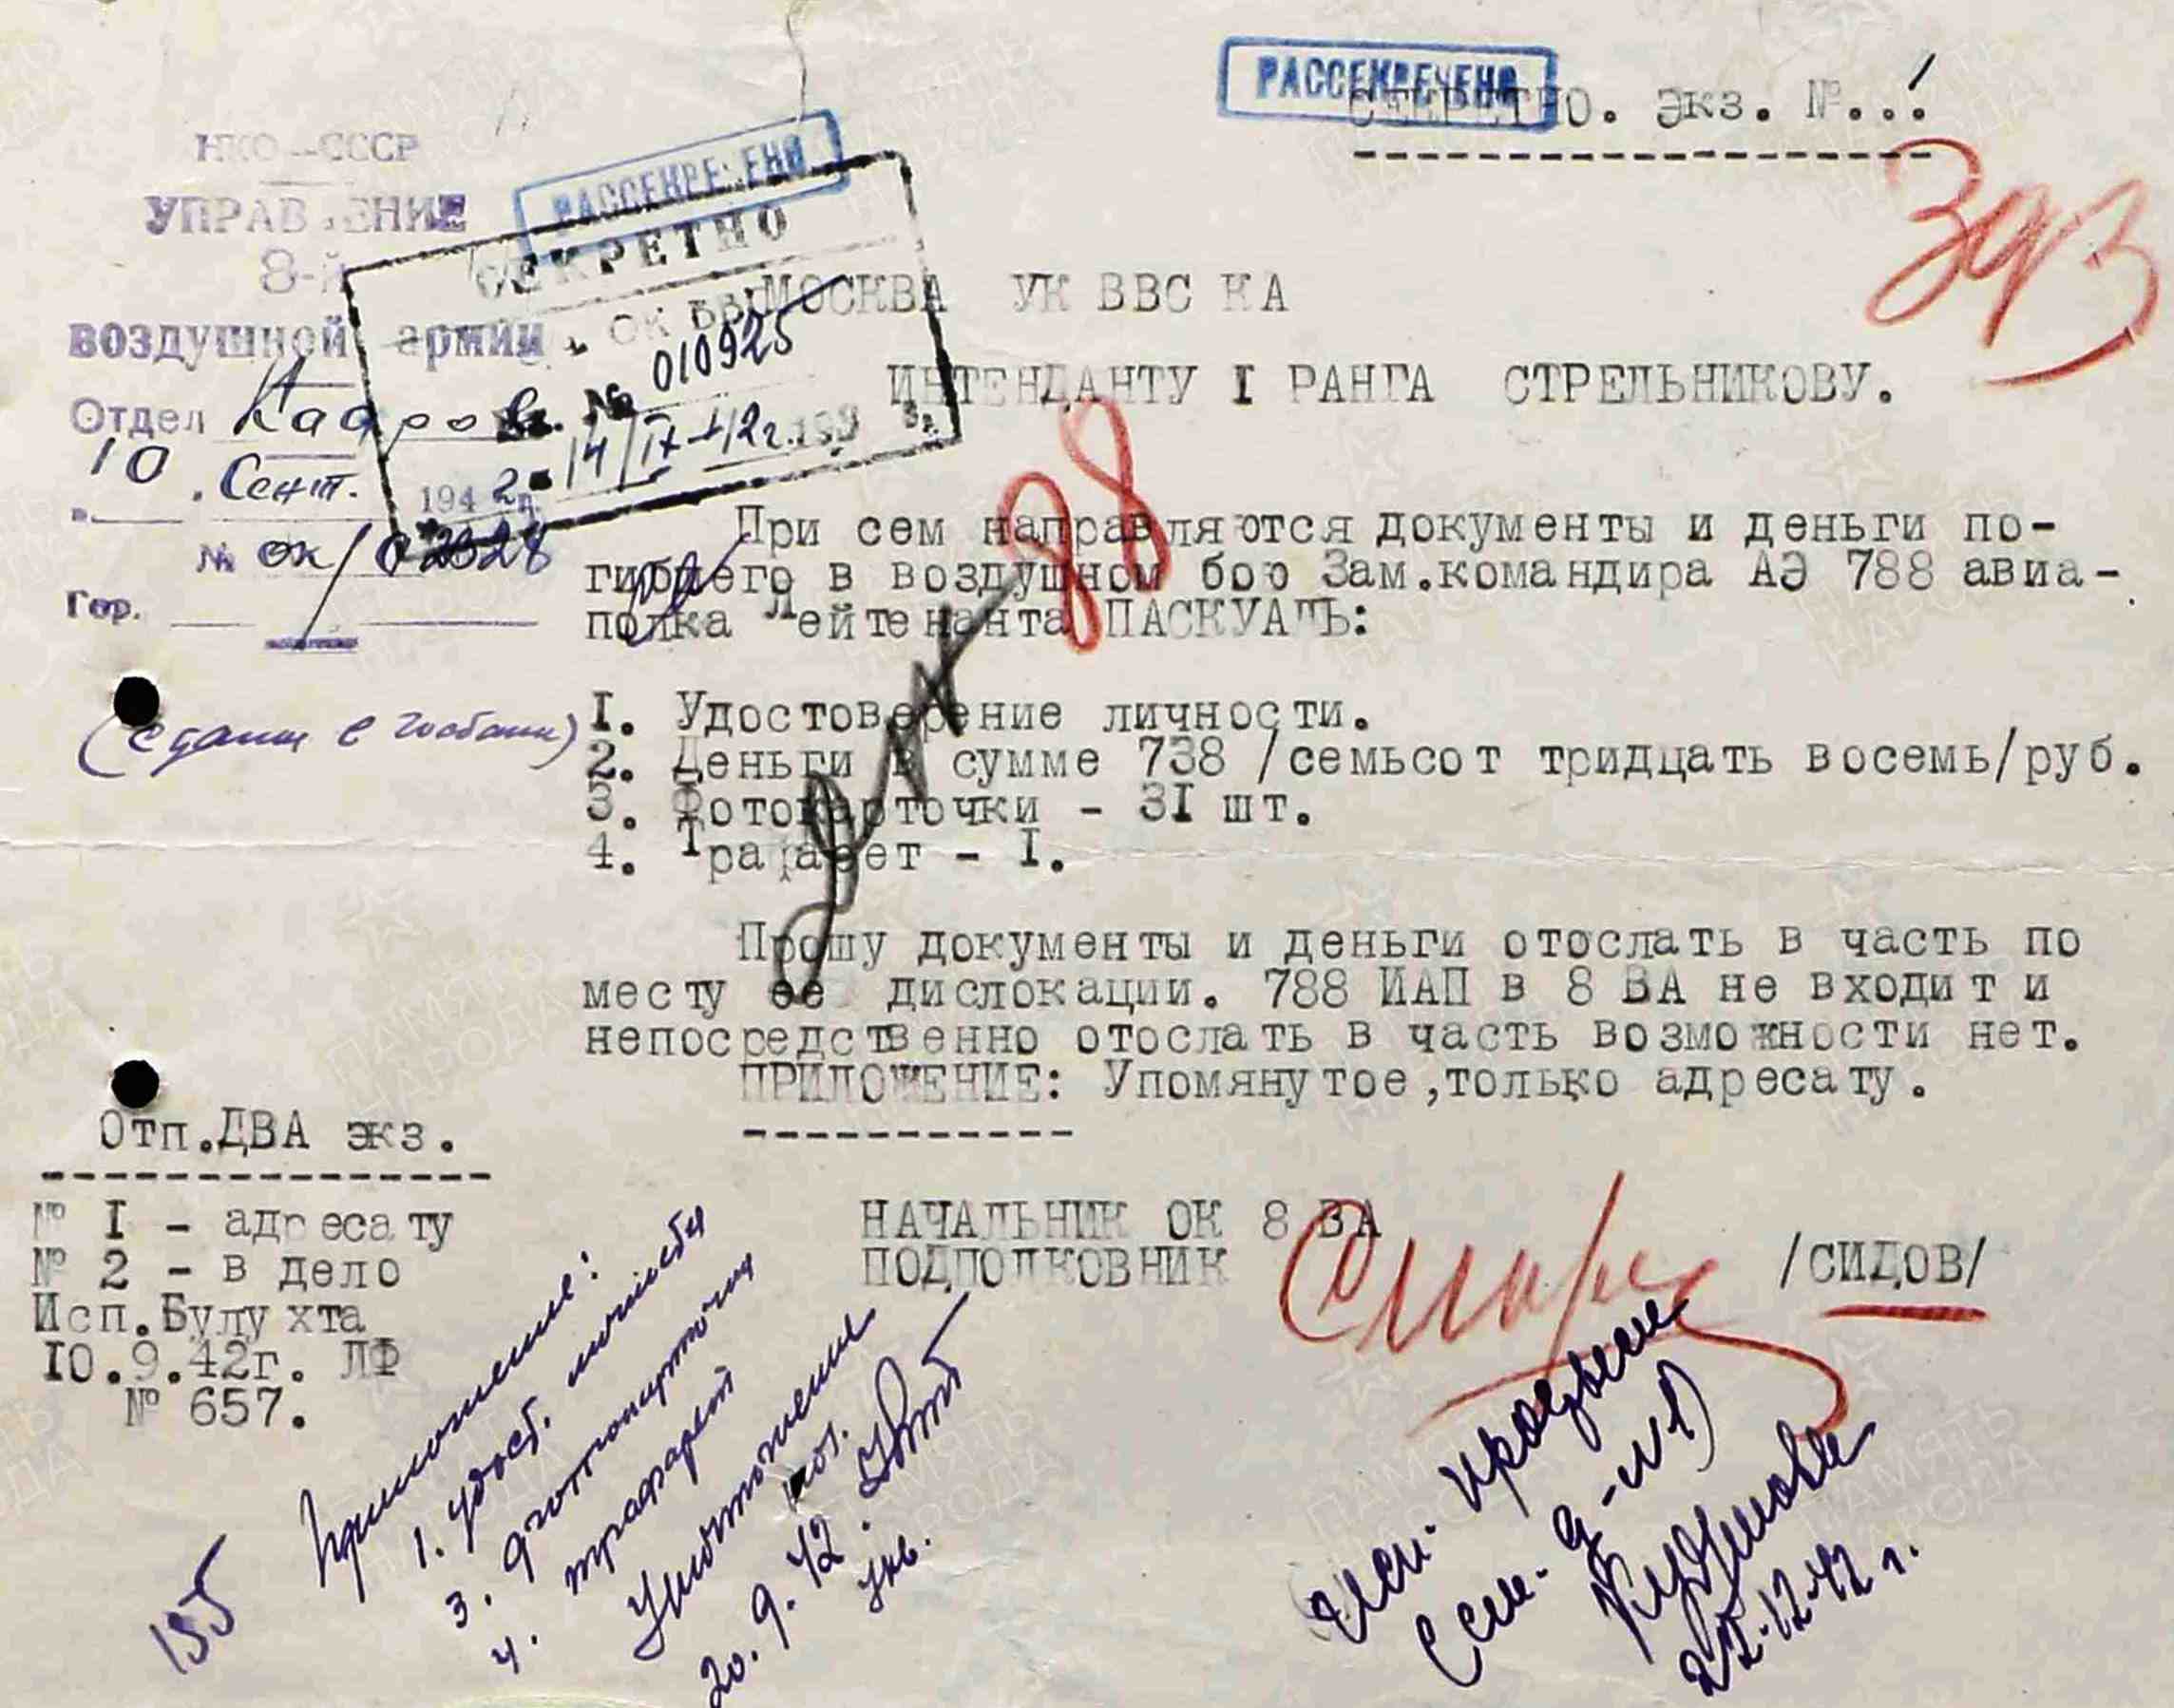 РАССЕКРЕЧЕНО
СЕКРЕТНО. Экз. №..1
НКО-СССР
УПРАВЛЕНИЕ
8-й
воздушной армии
Отдел Кадров
10 . Сент. 1942 г.
№ ок/02028
Гор.
РАССЕКРЕЧЕНО
СЕКРЕТНО
ОК ВВС
Вх. № 010925
14/IX-42г. 193 г.
393
МОСКВА УК ВВС КА
ИНТЕНДАНТУ I РАНГА СТРЕЛЬНИКОВУ.
88
При сем направляются документы и деньги по-
гибшего в воздушном бою Зам.командира АЭ 788 авиа-
полка Лейтенанта ПАСКУАЛЬ:
I. Удостоверение личности.
(сданы в госбанк)
2. Деньги в сумме 738 /семьсот тридцать восемь/руб.
3. Фотокарточки - 3I шт.
4. Трафарет - I.
Прошу документы и деньги отослать в часть по
месту ее дислокации. 788 ИАП в 8 ВА не входит и
непосредственно отослать в часть возможности нет.
ПРИЛОЖЕНИЕ: Упомянутое,только адресату.
НАЧАЛЬНИК ОК 8 ВА
ПОДПОЛКОВНИК /СИДОВ/
Отп.ДВА экз.
№ I - адресату
№ 2 - в дело
Исп.Булухта
I0.9.42г. ЛФ
№ 657.
Приложение:
1. удост. личности
3. фотокарточки
4. трафарет
Уничтожены
20.9.42.
155
22.12.42 г.